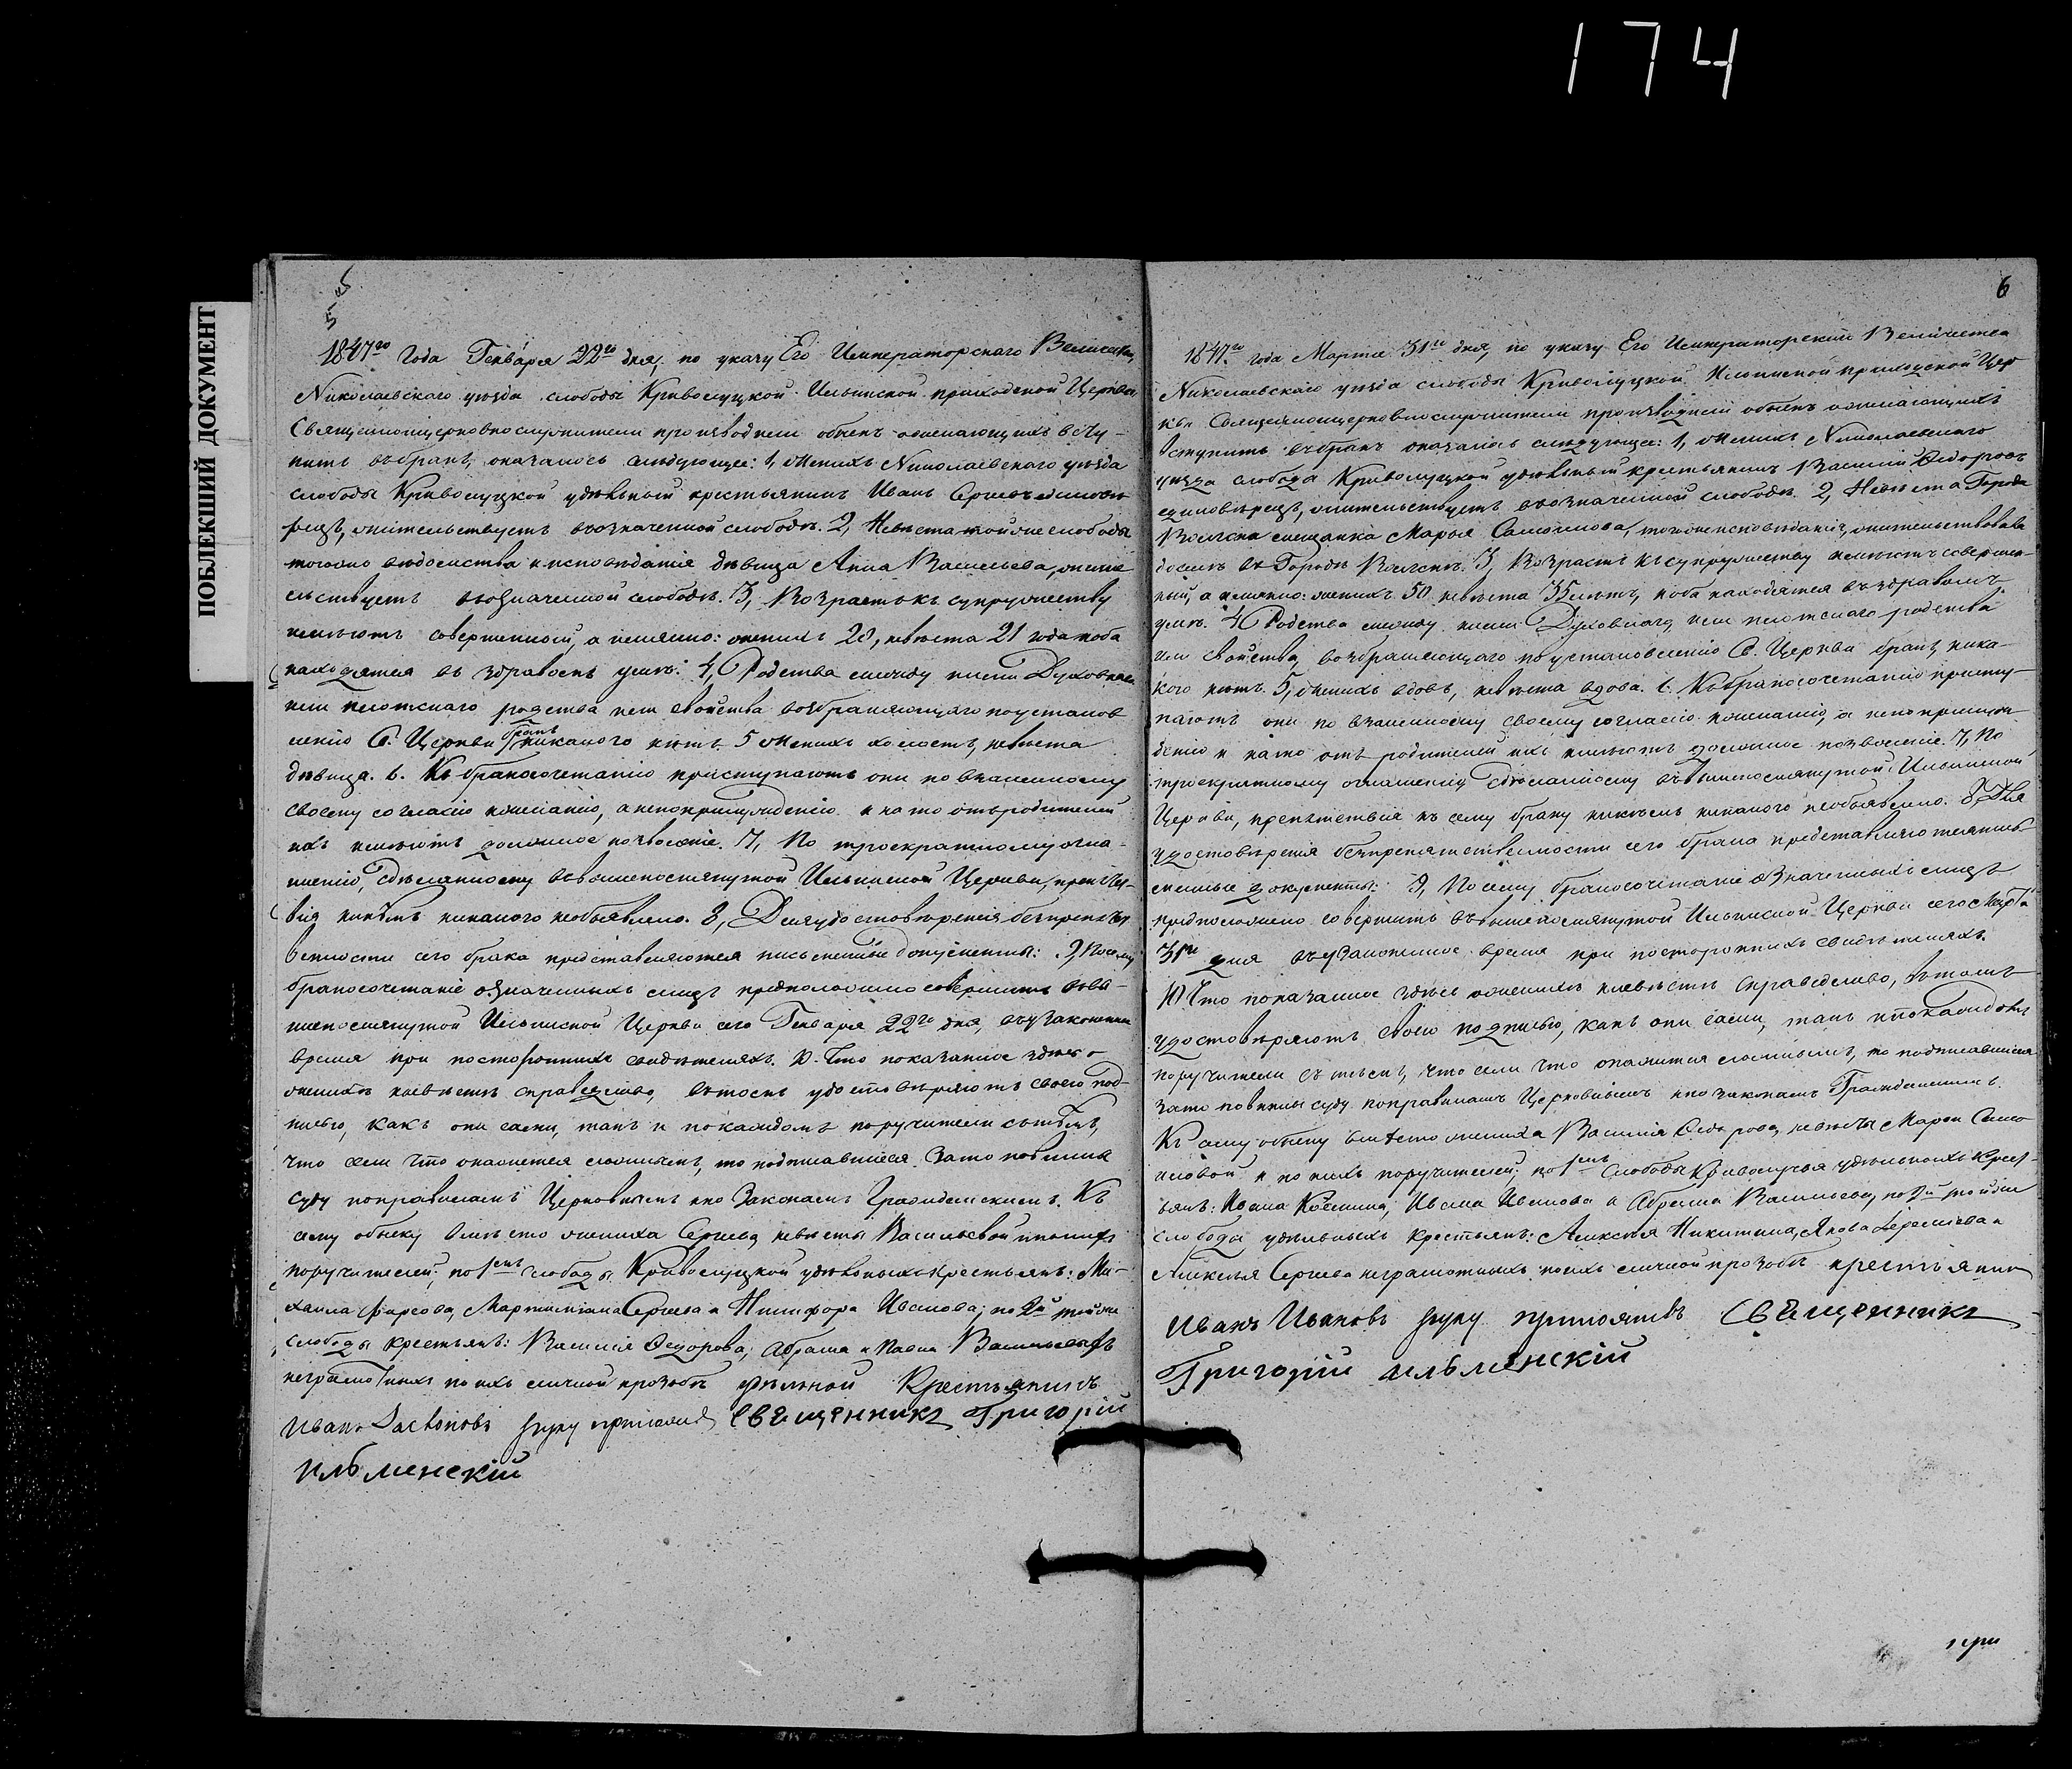 174
ПОБЛЕКШИЙ ДОКУМЕНТ
5 об
1847го Года Генваря 22го дня, по указу Его Императорскаго Величества
Николаевскаго уезда слободы Криволуцкой Ильинской приходской Церкви
Священноцерковнослужители производили обыск о желающихъ всту-
пить въ бракъ, оказалось следующее: 1, женихъ Николаевскаго уезда
слободы Криволуцкой удельный крестьянинъ Иванъ Сергеевъ единове-
рецъ, жительствуетъ въ означенной слободе. 2, Невеста той же слободы
того же ведомства и исповеданія девица Анна Васильева, житель-
ствуетъ въ означенной слободе. 3, Возрастъ къ супружеству
имеютъ совершенный, а именно: женихъ 20, невеста 21 года и оба
находятся въ здравомъ уме: 4, Родства между ними Духовнаго
или плотскаго родства или свойства возбраняющаго по установ
ленію Св. Церкви бракъ никакого нетъ. 5 Женихъ холостъ, невеста
девица. 6. Къ бракосочетанію приступаютъ они по взаимному
своему согласію и желанію, а не по принужденію и на то отъ родителей
ихъ имеютъ должное позволеніе. 7, По троекратному огла-
шенію, сделанному въ вышепомянутой Ильинской Церкви, препятст-
вія никемъ никакого не объявлено. 8, Для удостоверенія безпрепятст
венности сего брака представляются письменные документы: 9, Посему
бракосочетаніе означенныхъ лицъ предположено совершить въ вы-
шепомянутой Ильинской Церкви сего Генваря 22го дня, въ узаконенное
время при постороннихъ свидетеляхъ. 10. Что показанное здесь о
женихе и невесте справедливо, въ томъ удостоверяютъ своею под-
писью, какъ они сами, такъ и по каждомъ поручители съ темъ,
что если что окажется ложнымъ, то подписавшіеся за то повинны
суду по правиламъ Церковнымъ и по Законамъ Гражданскимъ. Къ
сему обыску вместо жениха Сергеева невесты Васильевой и по нихъ
поручителей; по 1мъ слободы Криволуцкой удельныхъ крестьянъ: Ми-
хаила Фирсова, Мартимiана Сергеева и Никифора Иванова; по 2й той же
слободы крестьянъ: Василія Федорова, Абрама и Павла Васильевыхъ
неграмотныхъ по ихъ личной прозьбе удельной Крестьянинъ
Иванъ руку приложилъ Священникъ Григорій
Ильминскій
6
1847го года Марта 31го дня, по указу Его Императорскаго Величества
Николаевскаго уезда слободы Криволуцкой Ильинской приходской Цер
кви Священноцерковнослужители производили обыскъ о желающихъ
вступить въ бракъ оказалось следующее: 1, женихъ Николаевскаго
уезда слобода Криволуцкой удельный крестьянинъ Василій Федоровъ
единоверецъ, жительствуетъ въ означенной слободе. 2, Невеста Города
Вольска мещанка Марья Самойлова, того же исповеданія, жительствовала
доселе въ Городе Вольске. 3, Возрастъ къ супружеству имеютъ совершен-
ный, а именно: женихъ 50 невеста 35 летъ, и оба находятся въ здравомъ
уме. 4, Родства между ними Духовнаго, или плотскаго родства
или свойства, возбраняющаго по установленію Св. Церкви бракъ, ника-
кого нетъ. 5, Женихъ вдовъ, невеста вдова. 6. Къ бракосочетанію присту-
паютъ они по взаимному своему согласію и желанію, а не по принуж
денію и на то отъ родителей ихъ имеютъ должное позволеніе. 7, По
троекратному оглашенію, сделанному въ вышепомянутой Ильинской
Церкви, препятствія къ сему браку никемъ никакого не объявлено. 8, Для
удостоверенія безпрепятственности сего брака представляются пись-
менные документы: 9, Посему бракосочетаніе означенныхъ лицъ
предположено совершить въ вышепомянутой Ильинской Церкви сего Марта
31го дня въ узаконенное время при постороннихъ свидетеляхъ.
10 Что показанное здесь о женихе и невесте справедливо, въ томъ
удостоверяютъ своею подписью, какъ они сами, такъ и по каждомъ
поручители съ темъ, что если что окажется ложнымъ, то подписавшіеся
за то повинны суду по правиламъ Церковнымъ и по законамъ Гражданскимъ.
Къ сему обыску вместо жениха Василія Федорова, невесты Марьи Само
йловой и по нихъ поручителей; по 1мъ слободы Криволучья удельныхъ крест-
ьянъ: Ивана, Ивана Иванова и Абрама Васильева, по 2й той же
слободы удельныхъ крестьянъ: Алексея Никитина, Якова Еремеева и
Алексея Сергеева неграмотныхъ по ихъ личной прозьбе крестьянин
Иванъ Ивановъ руку приложилъ Священникъ
Григорій Ильминскій